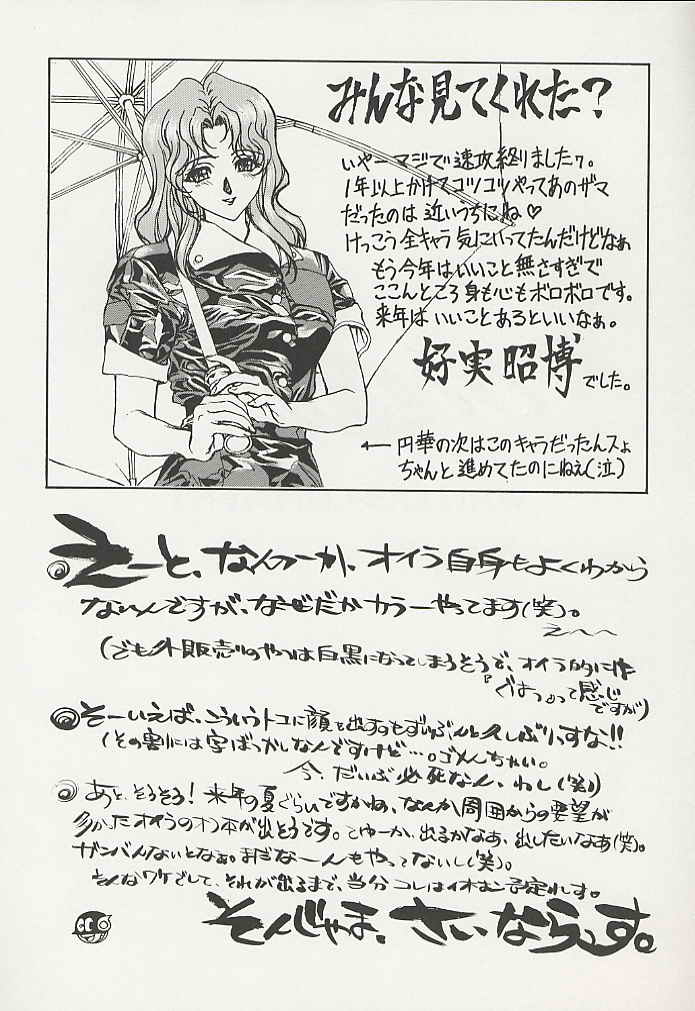 みんな見てくれた?
いやーマジで速攻終りましたァ。
1年以上かけてコツコツやってあのザマ
だったのは近いうちにね♡
けっこう全キャラ気にいってたんだけどなぁ
もう今年はいいこと無さすぎで
ここんところ身も心もボロボロです。
来年はいいことあるといいなぁ。
好実昭博でした。
← 円華の次はこのキャラだったんスよ
ちゃんと進めてたのにねぇ(泣)
えーと、なんつーか、オイラ自身もよくわから
ないんですが、なぜだかカラーやってます(笑)。
え〜〜
(でも外販売りのやつは白黒になってしまうそうで、オイラ的に
『ぐはっ』って感じ
ですが)
そーいえば、こういうトコに顔を出すのもずいぶんと久しぶりっすな!!
(その割には字ばっかしなんですけど…。ゴメんちゃい。
今、だいぶ必死なん、わし(笑))
あと、そうそう!来年の夏ぐらいですかね、なんか周囲からの要望が
多かったオイラのオフ本が出そうです。てゆーか、出るかなあ、出したいなあ(笑)。
ガンバんないとなぁ。まだなーんもやってないし(笑)。
そんなワケでして、それが出るまで、当分コレは予定れす。
そんじゃま、さいならっす。